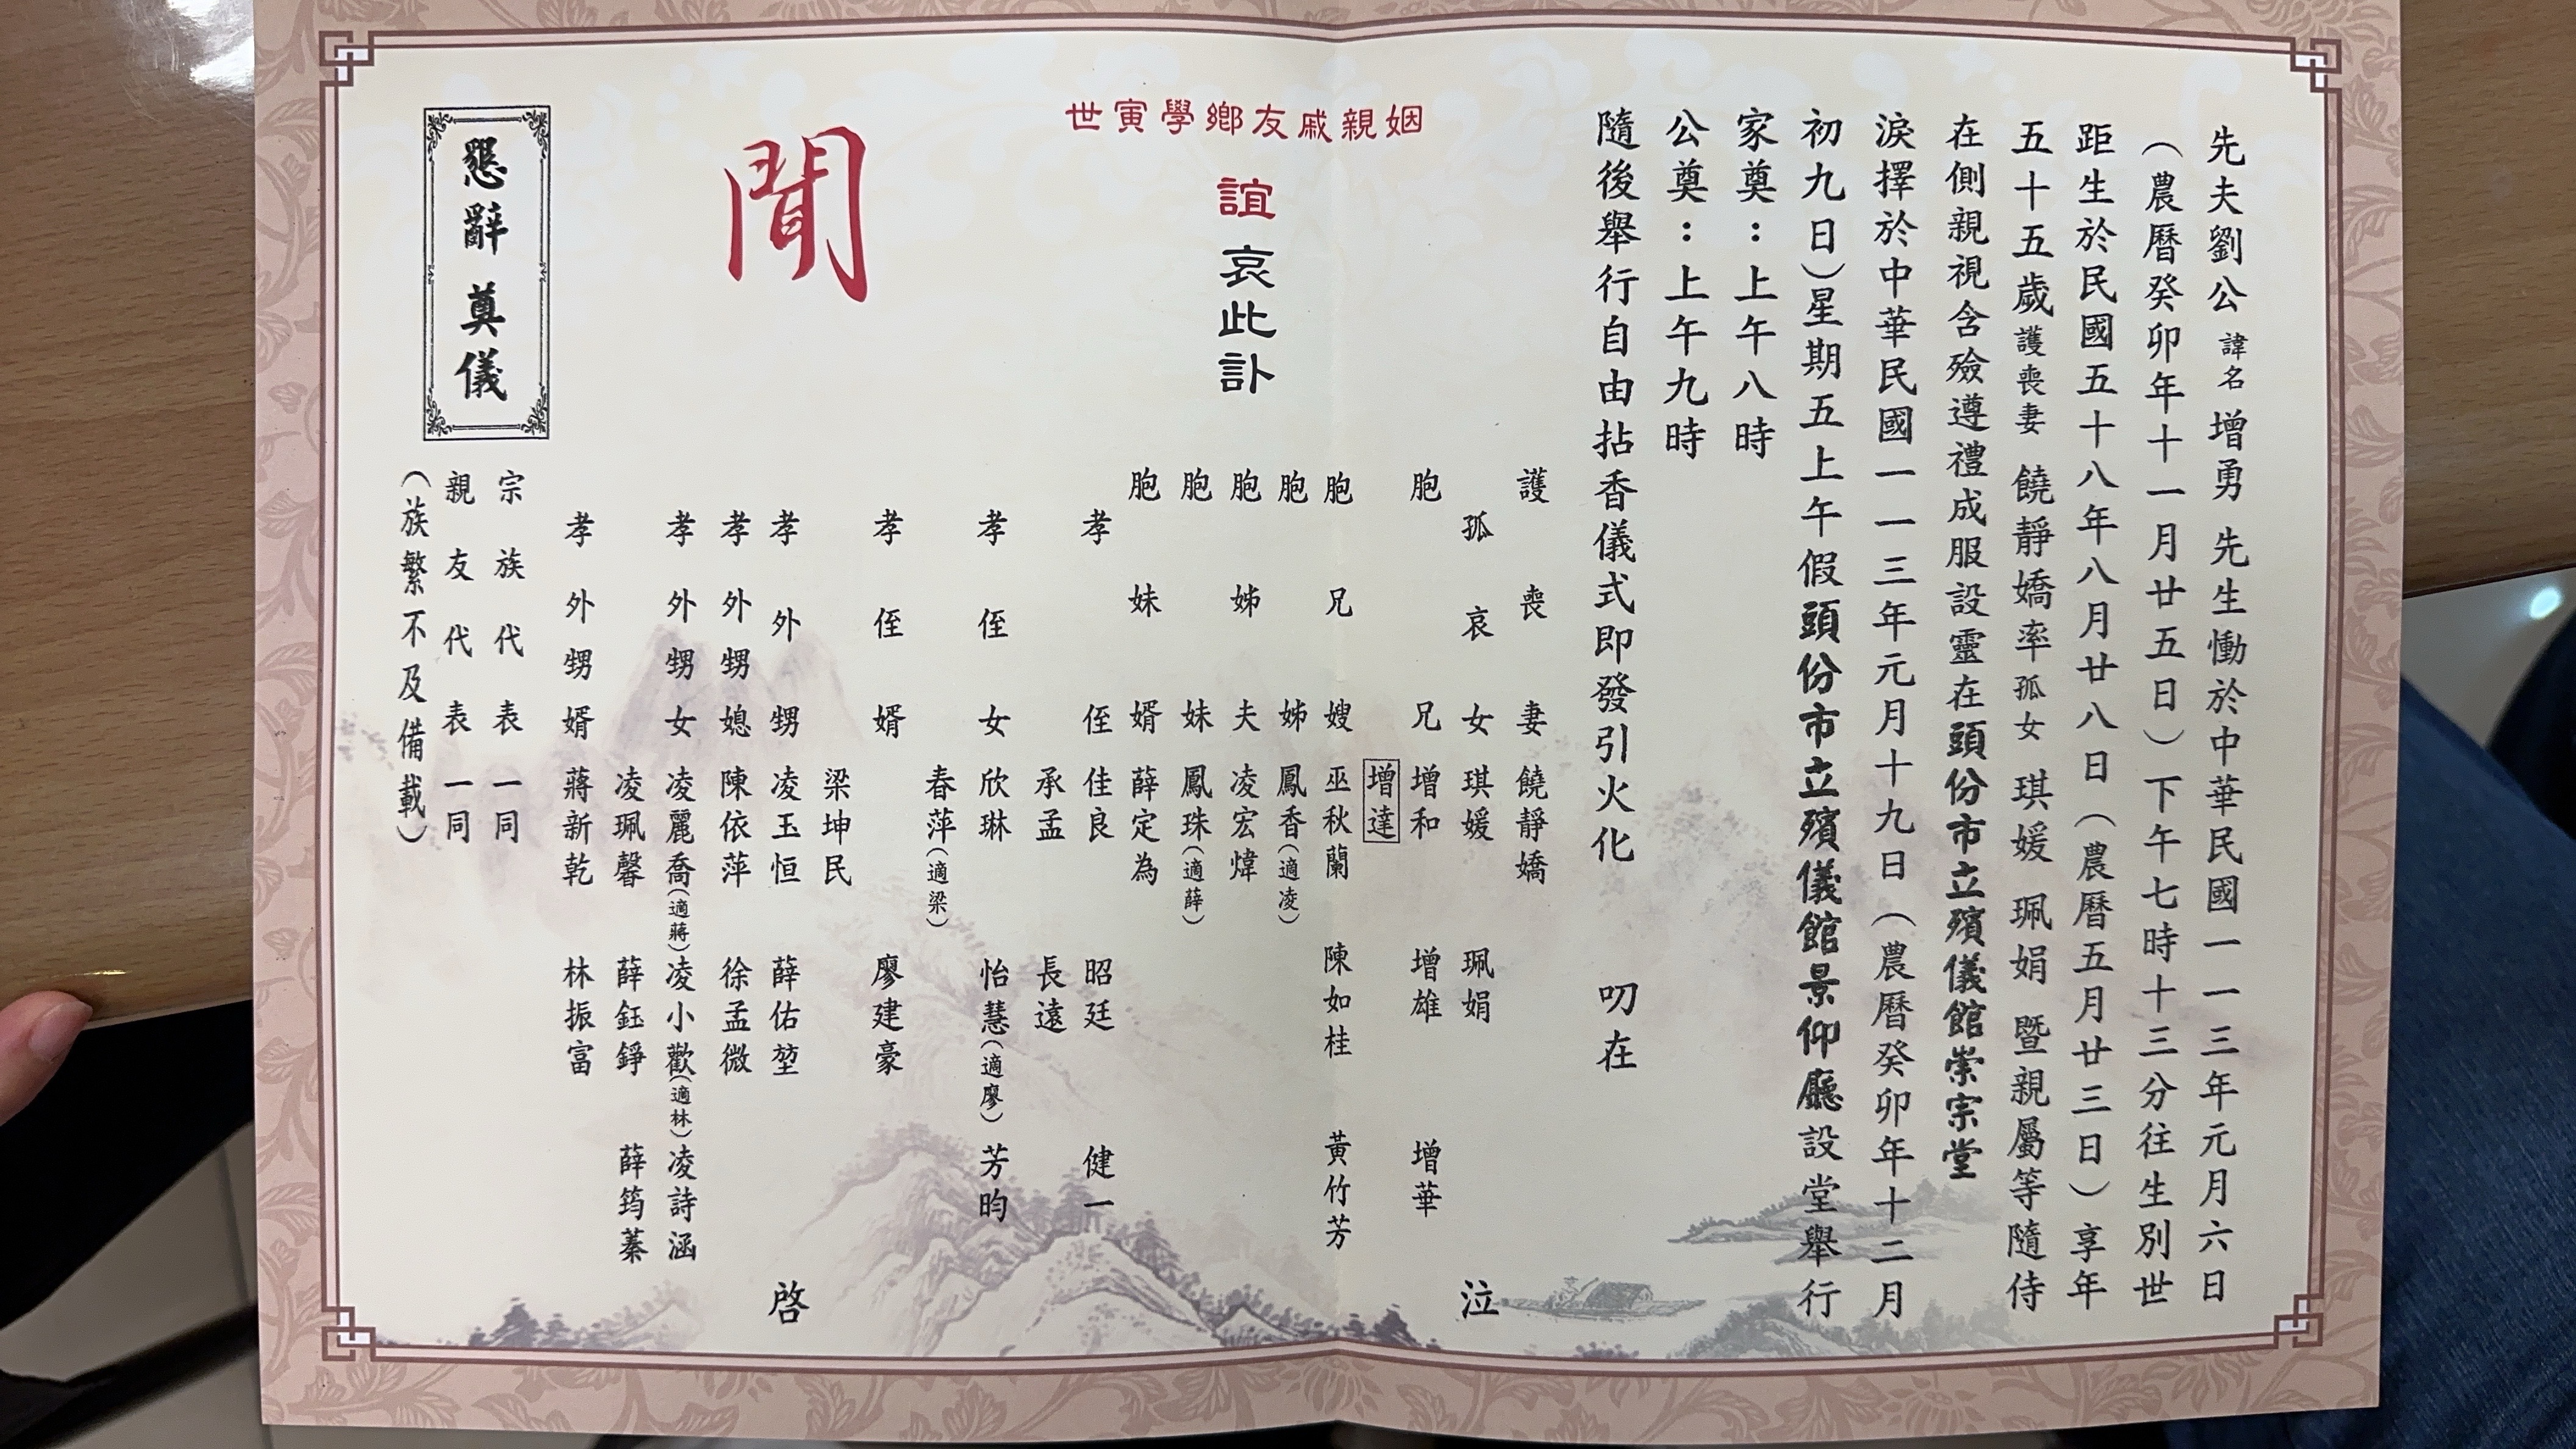 先夫劉公諱名增勇先生慟於中華民國一一三年元月六日
（農曆癸卯年十一月廿五日）下午七時十三分往生別世
距生於民國五十八年八月廿八日（農曆五月廿三日）享年
五十五歲護喪妻饒靜嬌率孤女琪媛珮娟暨親屬等隨侍
在側親視含殮遵禮成服設靈在頭份市立殯儀館崇宗堂
淚擇於中華民國一一三年元月十九日（農曆癸卯年十二月
初九日）星期五上午假頭份市立殯儀館景仰廳設堂舉行
家奠：上午八時
公奠：上午九時
隨後舉行自由拈香儀式即發引火化 叨在
姻親戚友鄉學寅世
誼哀此訃
聞
護喪妻 饒靜嬌
孤哀女 琪媛 珮娟 泣
胞兄 增和 增雄 增華
增達
胞兄嫂 巫秋蘭 陳如桂 黃竹芳
胞姊 鳳香（適凌）
胞姊夫 凌宏煒
胞妹 鳳珠（適薛）
胞妹婿 薛定為
孝侄 佳良 昭廷 健一
承孟 長遠
孝侄女 欣琳 怡慧（適廖） 芳昀
春萍（適梁）
孝侄婿 廖建豪
梁坤民
孝外甥 凌玉恒 薛佑堃 啓
孝外甥媳 陳依萍 徐孟微
孝外甥女 凌麗喬（適蔣） 凌小歡（適林） 凌詩涵
凌珮馨 薛鈺錚 薛筠蓁
孝外甥婿 蔣新乾 林振富
宗族代表一同
親友代表一同
（族繁不及備載）
懇辭 奠儀